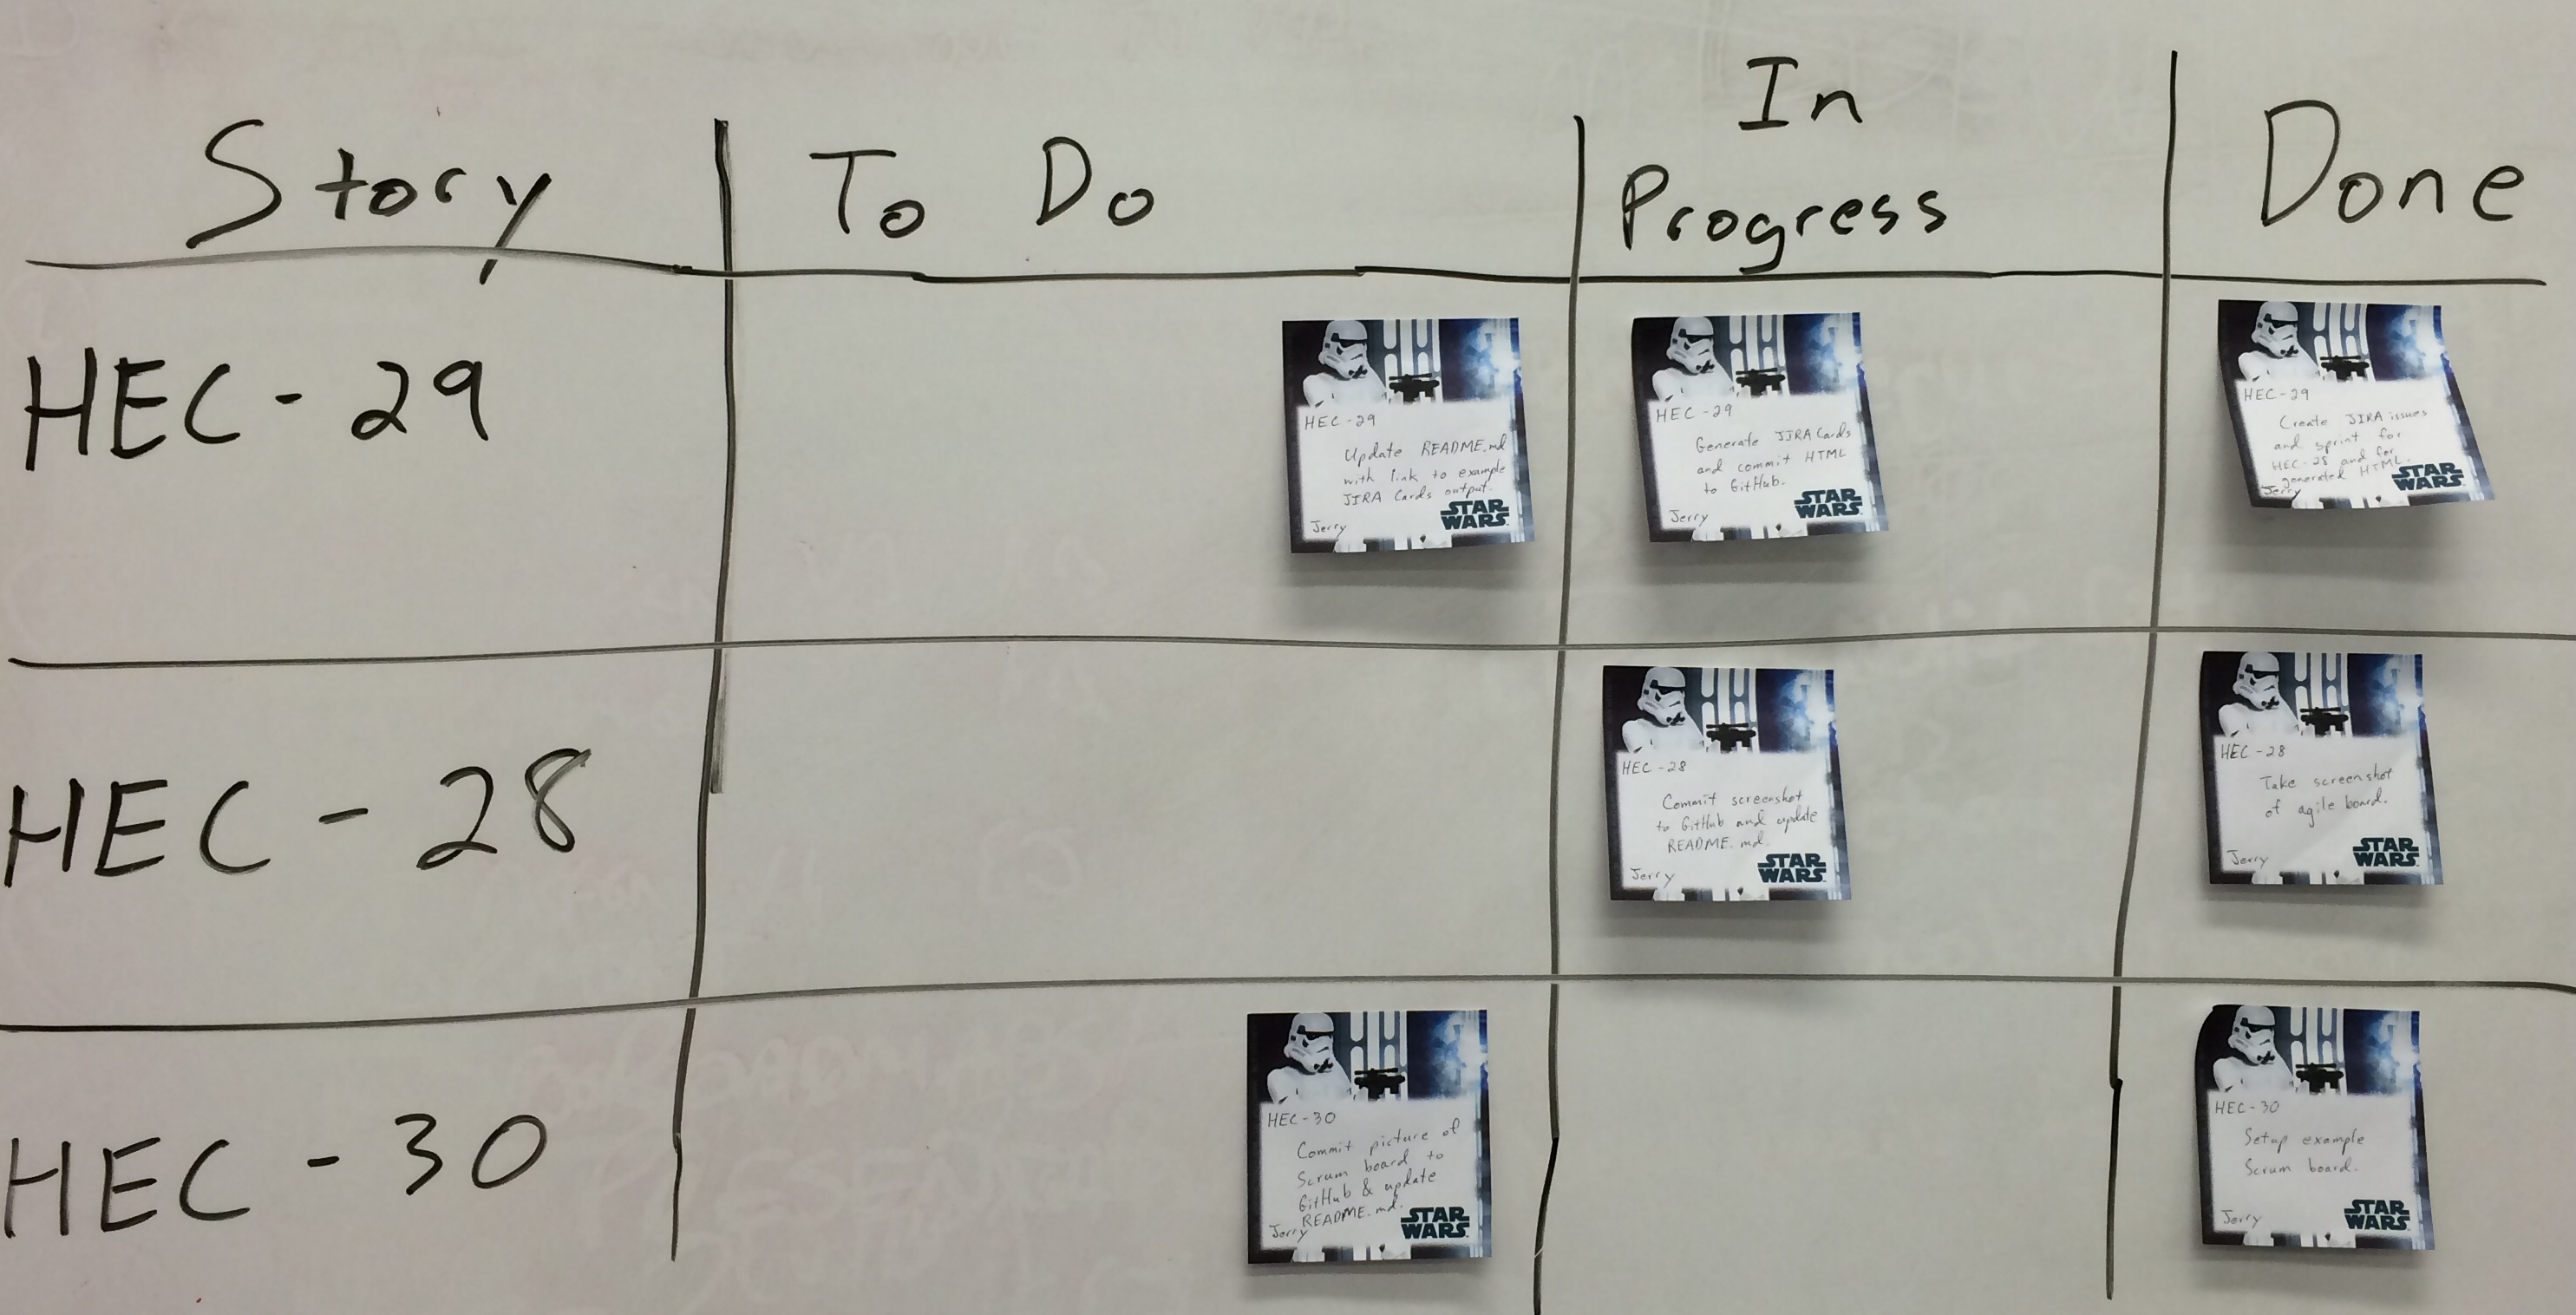 Story
To Do
In
Progress
Done
HEC - 29
HEC -29
Update README.md
with link to example
JIRA Cards output.
Jerry
STAR
WARS
HEC -29
Generate JIRA Cards
and commit HTML
to GitHub.
Jerry
STAR
WARS
HEC -29
Create JIRA issues
and sprint for
HEC-28 and for
generated HTML.
Jerry
STAR
WARS
HEC - 28
HEC -28
Commit screenshot
to GitHub and update
README.md.
Jerry
STAR
WARS
HEC -28
Take screenshot
of agile board.
Jerry
STAR
WARS
HEC - 30
HEC-30
Commit picture of
Scrum board to
GitHub & update
README.md.
Jerry
STAR
WARS
HEC-30
Setup example
Scrum board.
Jerry
STAR
WARS